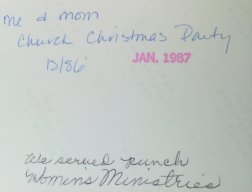 me & mom
Church Christmas Party
12/86
JAN. 1987
We served punch
Women's Ministries